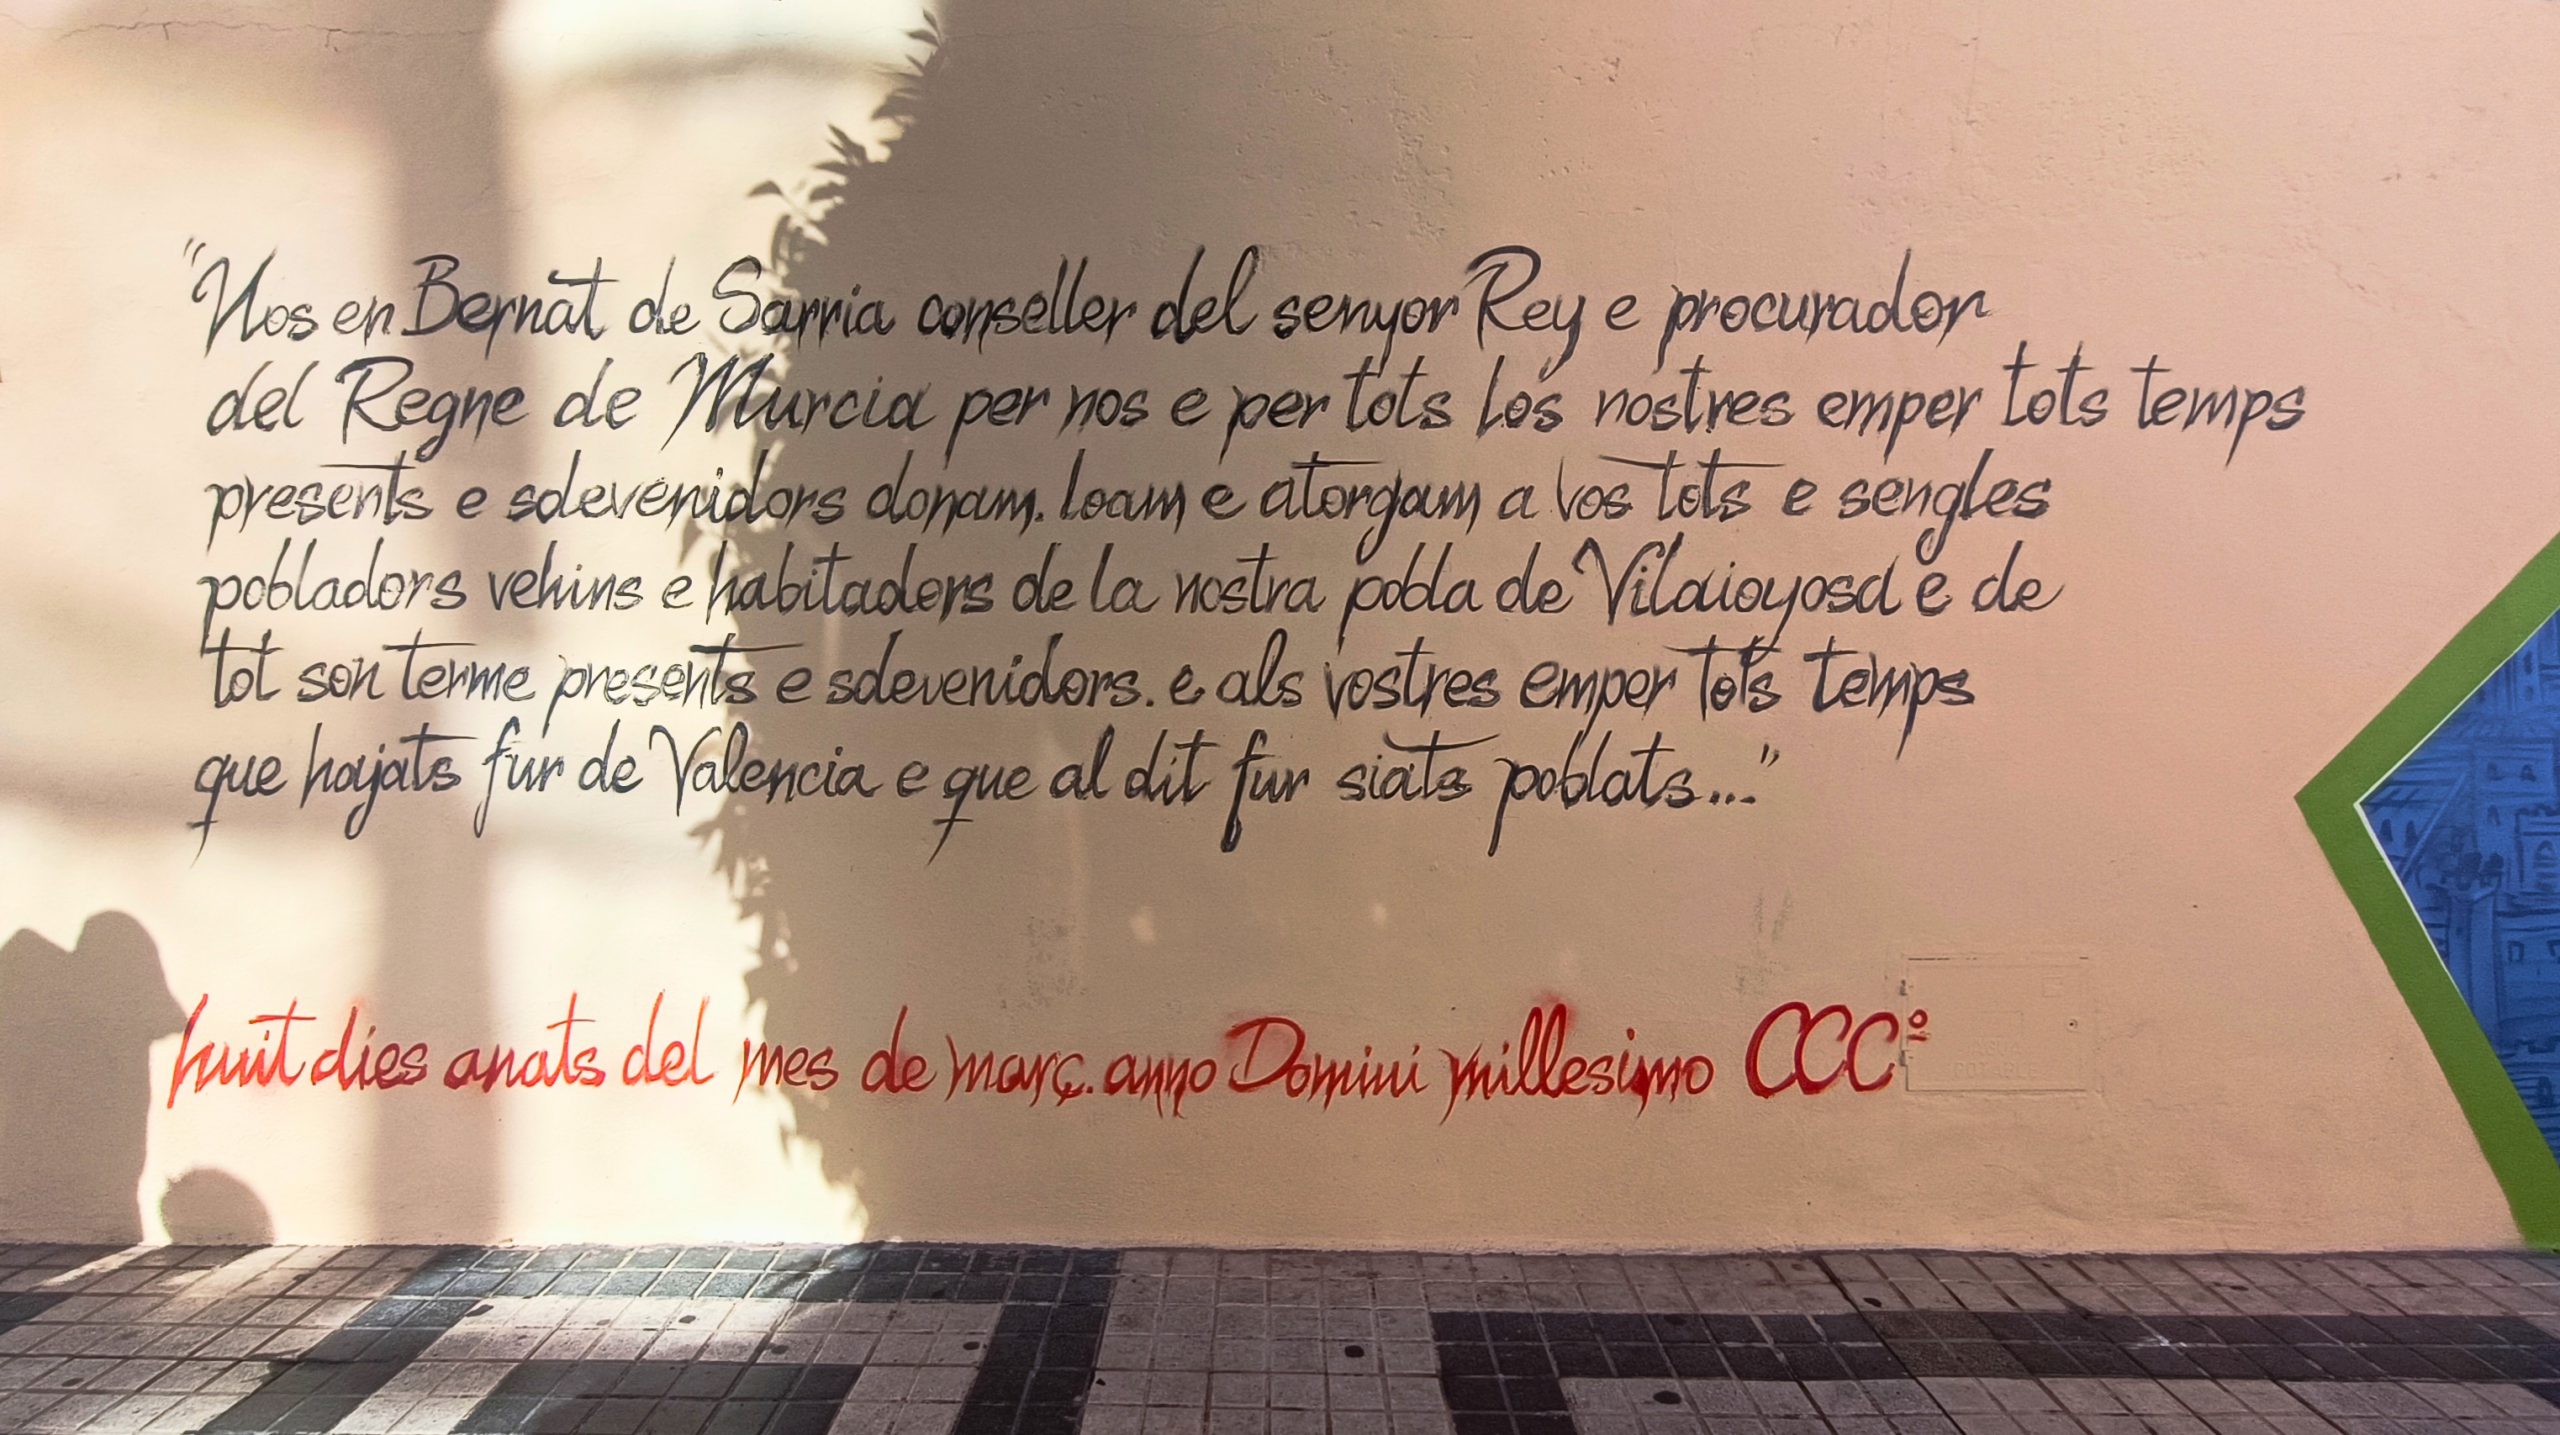 "Nos en Bernat de Sarria conseller del senyor Rey e procurador
del Regne de Murcia per nos e per tots los nostres emper tots temps
presents e sdevenidors donam. loam e atorgam a vos tots e sengles
pobladors vehins e habitadors de la nostra pobla de Vilaioyosa e de
tot son terme presents e sdevenidors. e als vostres emper tots temps
que hajats fur de Valencia e que al dit fur siats poblats..."
huit dies anats del mes de març. anno Domini millesimo CCCº